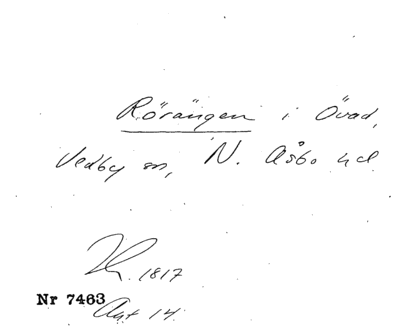 Rörängen i Övad,
Vedby sn, N. Åsbo hd
1817
Nr 7463
Akt 14.